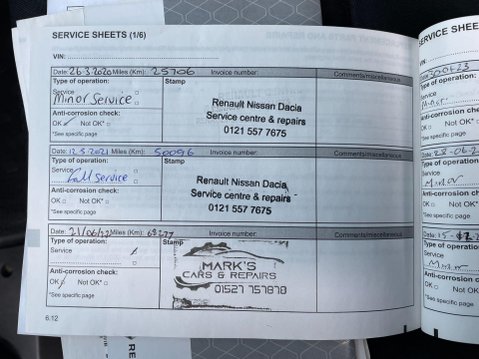 SERVICE SHEETS (1/6)
VIN:
Date: 26.3.2020 Miles (Km): 25706 Invoice number: Comments/miscellaneous
Type of operation: Stamp
Service
Minor Service
Anti-corrosion check:
OK ✓ Not OK* □
*See specific page
Renault Nissan Dacia
Service centre & repairs
0121 557 7675
Date: Miles (Km): 50096 Invoice number: Comments/miscellaneous
Type of operation: Stamp
Service □
Full Service □
Anti-corrosion check:
OK □ Not OK* □
*See specific page
Renault Nissan Dacia
Service centre & repairs
0121 557 7675
Date: 21/06/22 Miles (Km): Invoice number: Comments/miscellaneous
Type of operation: Stamp
Service ✓
□
Anti-corrosion check:
OK ✓ Not OK* □
*See specific page
MARK'S
CARS & REPAIRS
01527 757870
6.12
SERVICE SHEE
VIN:
Date:
Type of operation:
Service
Minor
Anti-corrosion
OK □
*See specific pa
Date: 28-06-2
Type of operat
Service
Minor
Anti-corrosion
OK □
*See specific pag
Date: 15-
Type of operatio
Service
Minor
Anti-corrosion c
OK □
*See specific page